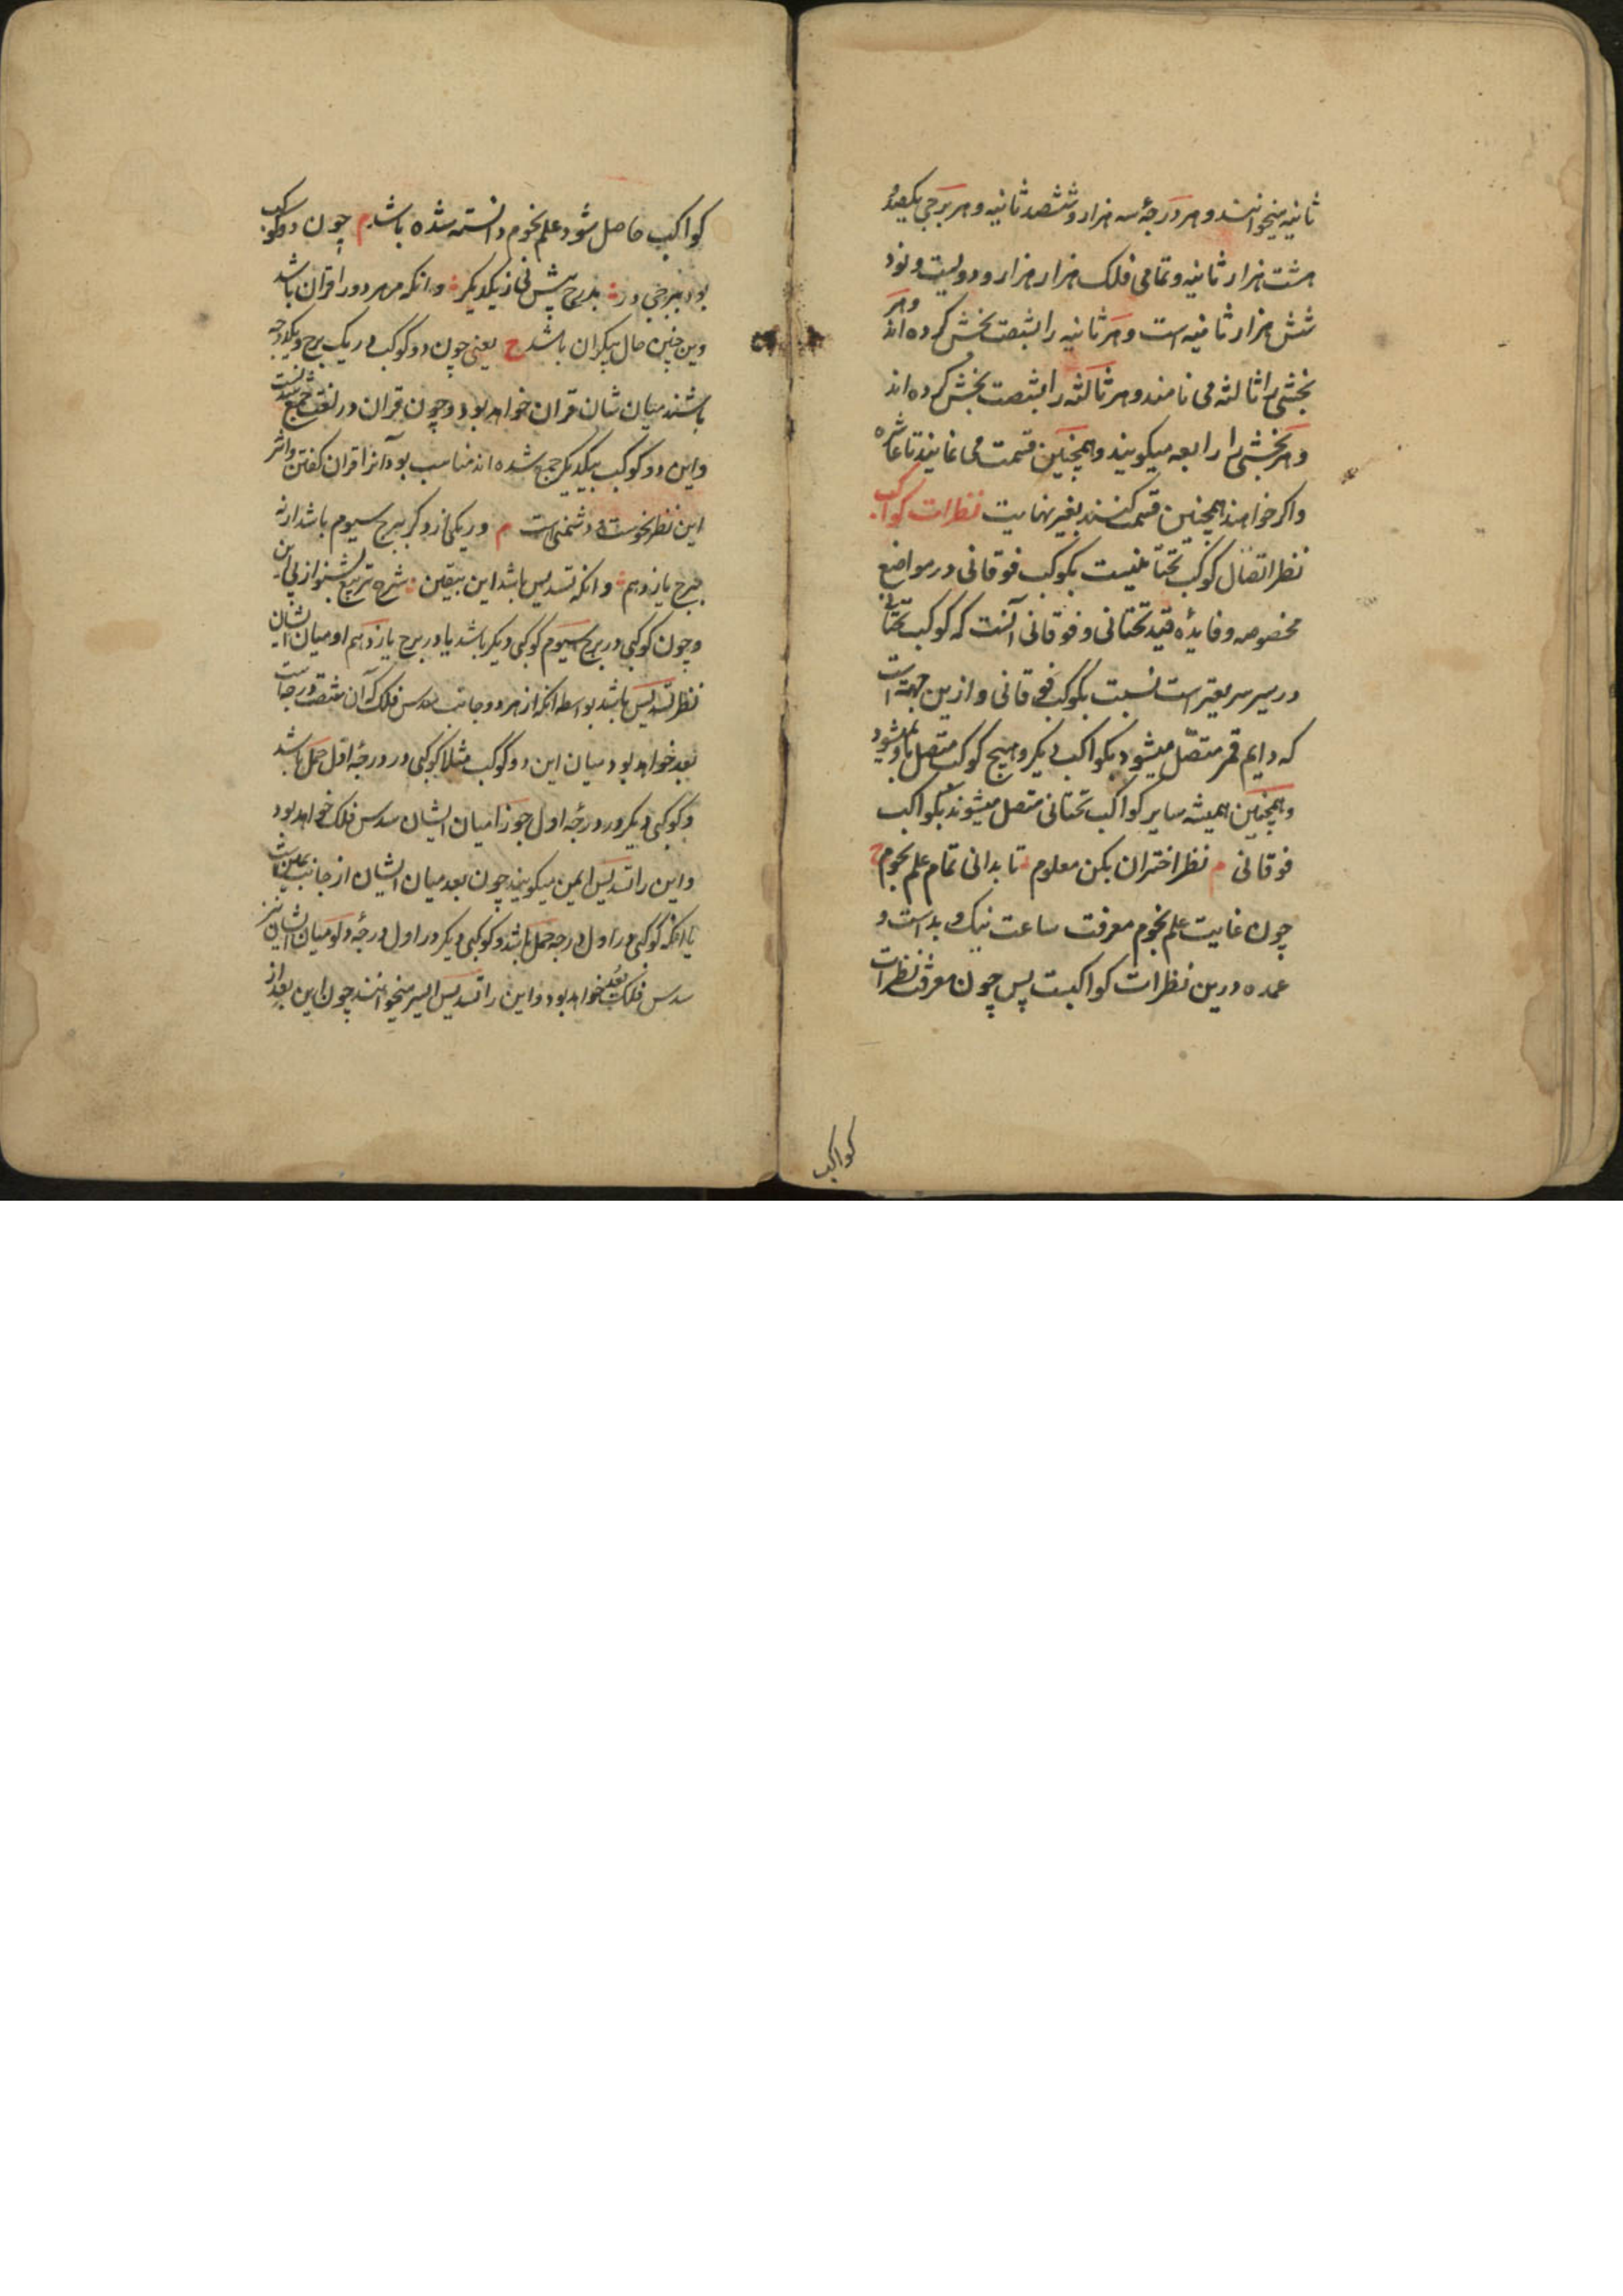 ثانیه میخوانند و هر درجهٔ سه هزار و ششصد ثانیه و هر برجی یکصد و
هشت هزار ثانیه و تمامی فلک هزار هزار و دویست و نود
شش هزار ثانیه است و هر ثانیه را بشصت بخش کرده اند و هر
بخشی را ثالثه می نامند و هر ثالثه را بشصت بخش کرده اند
و هر بخشی را رابعه میکویند و همچنین قسمت می نمایند تا عاشره
و اکر خواهند همچنین قسمت کنند بغیر نهایت نظرات کواکب
نظر اتصال کوکب تحتانیست بکوکب فوقانی در مواضع
مخصوصه و فایدهٔ قید تحتانی و فوقانی آنست که کوکب تحتانی
در سیر سریعتر است نسبت بکوکب فوقانی و ازین جهت است
که دایم قمر متصل میشود بکواکب دیکر و هیچ کوکب متصل باو نمیشود
و همچنین همیشه سایر کواکب تحتانی متصل میشوند بکواکب
فوقانی م نظر اختران بکن معلوم تا بدانی تمام علم نجوم ح
چون غایت علم نجوم معرفت ساعت نیک و بد است و
عمده درین نظرات کواکبست پس چون معرفت نظرات
کواکب
کواکب حاصل شود علم نجوم دانسته شده باشد م چون دو کوکب
بود ببرجی در بدرج پیش نی ز یکدیکر و انکه مر هر دو را قران باشد
وین چنین حال بیکران باشد ح یعنی چون دو کوکب در یک برج و یکدرجه
باشند میان شان قران خواهد بود و چون قران در لغت جمع شدنست
و این دو کوکب بیکدیکر جمع شده اند مناسب بود آنرا قران کفتن و اثر
این نظر نحوست و دشمنی است م ور یکی زو کر ببرج سیوم باشد ار نه
ببرج یازدهم و انکه تسدیس باشد این بیقین شرح تربیع بشنو از پی این
و چون کوکبی در برج سیوم کوکبی دیکر باشد یا در برج یازدهم او میان ایشان
نظر تسدیس باشد بواسطه انکه از هر دو جانب سدس فلک که آن شصت درجه است
بعد خواهد بود میان این دو کوکب مثلا کوکبی در درجهٔ اول حمل باشد
و کوکبی دیکر در درجهٔ اول جوزا میان ایشان سدس فلک خواهد بود
و این را تسدیس ایمن میکویند چون بعد میان ایشان از جانب یمین است
یا انکه کوکبی در اول درجه حمل باشد و کوکبی دیکر در اول درجهٔ دلو میان ایشان نیز
سدس فلک بعد خواهد بود و این را تسدیس ایسر میخوانند چون این بعد از